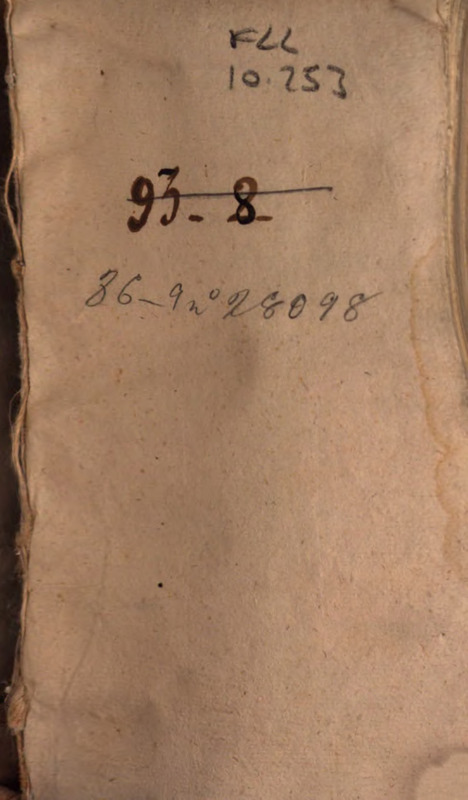 FLL
10.253
93-8-
86-9 nº 28098